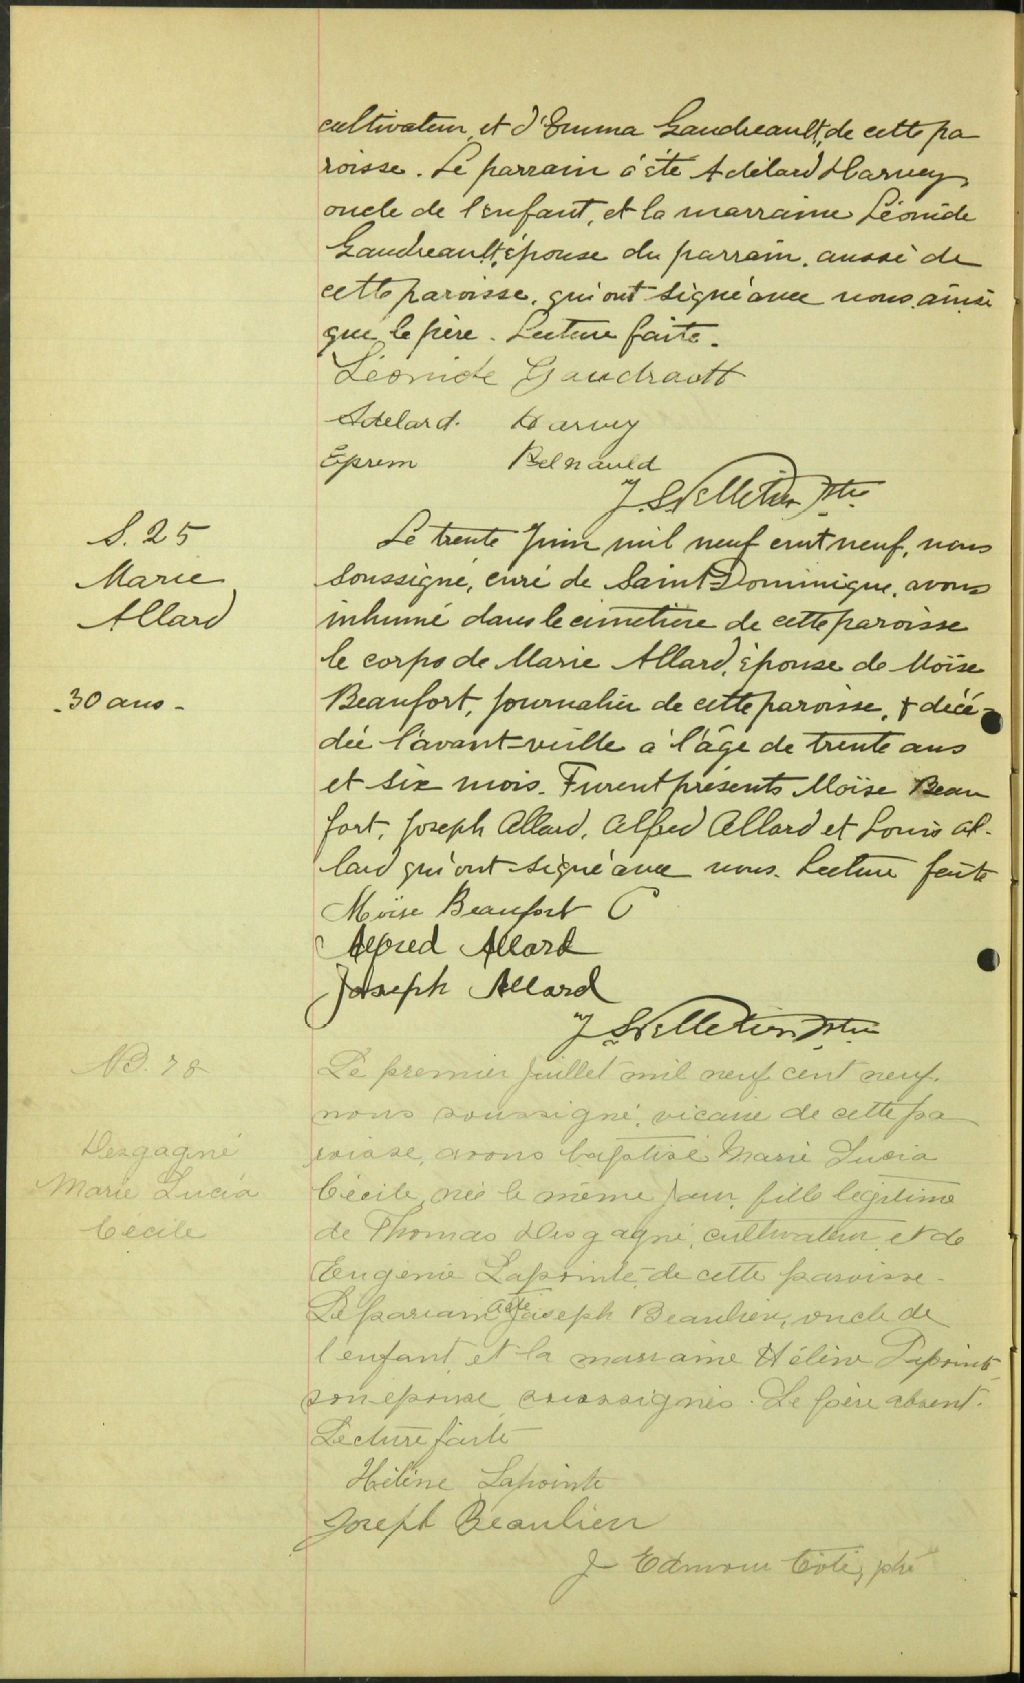 cultivateur, et d'Emma Gaudreault, de cette pa
roisse. Le parrain a été Adélard Harvey,
oncle de l'enfant, et la marraine Léonide
Gaudreault, épouse du parrain, aussi de
cette paroisse, qui ont signé avec nous ainsi
que le père. Lecture faite.
Léonide Gaudrault
Adelard Harvey
Eprem
J. S. Pelletier Ptre
S. 25
Marie
Allard
30 ans -
Le trente Juin mil neuf cent neuf, nous
soussigné, curé de Saint-Dominique, avons
inhumé dans le cimetière de cette paroisse
le corps de Marie Allard, épouse de Moïse
Beaufort, journalier de cette paroisse, décé-
dée l'avant-veille à l'âge de trente ans
et six mois. Furent présents Moïse Beau
fort, Joseph Allard, Alfred Allard et Louis Al-
lard qui ont signé avec nous. Lecture faite
Moïse Beaufort
Alfred Allard
Joseph Allard
J S Pelletier Ptre
B. 78
Desgagné
Marie Lucia
Cécile
Le premier juillet mil neuf cent neuf,
nous soussigné, vicaire de cette pa
roisse, avons baptisé Marie Lucia
Cécile, née le même jour, fille légitime
de Thomas Desgagné, cultivateur, et de
Eugenie Lapointe, de cette paroisse.
Le parrain a été Joseph Beaulieu, oncle de
l'enfant, et la marraine Hélène Lapointe
son épouse, soussignés. Le père absent.
Lecture faite
Hélène Lapointe
Joseph Beaulieu
J Edmour Côté, ptre